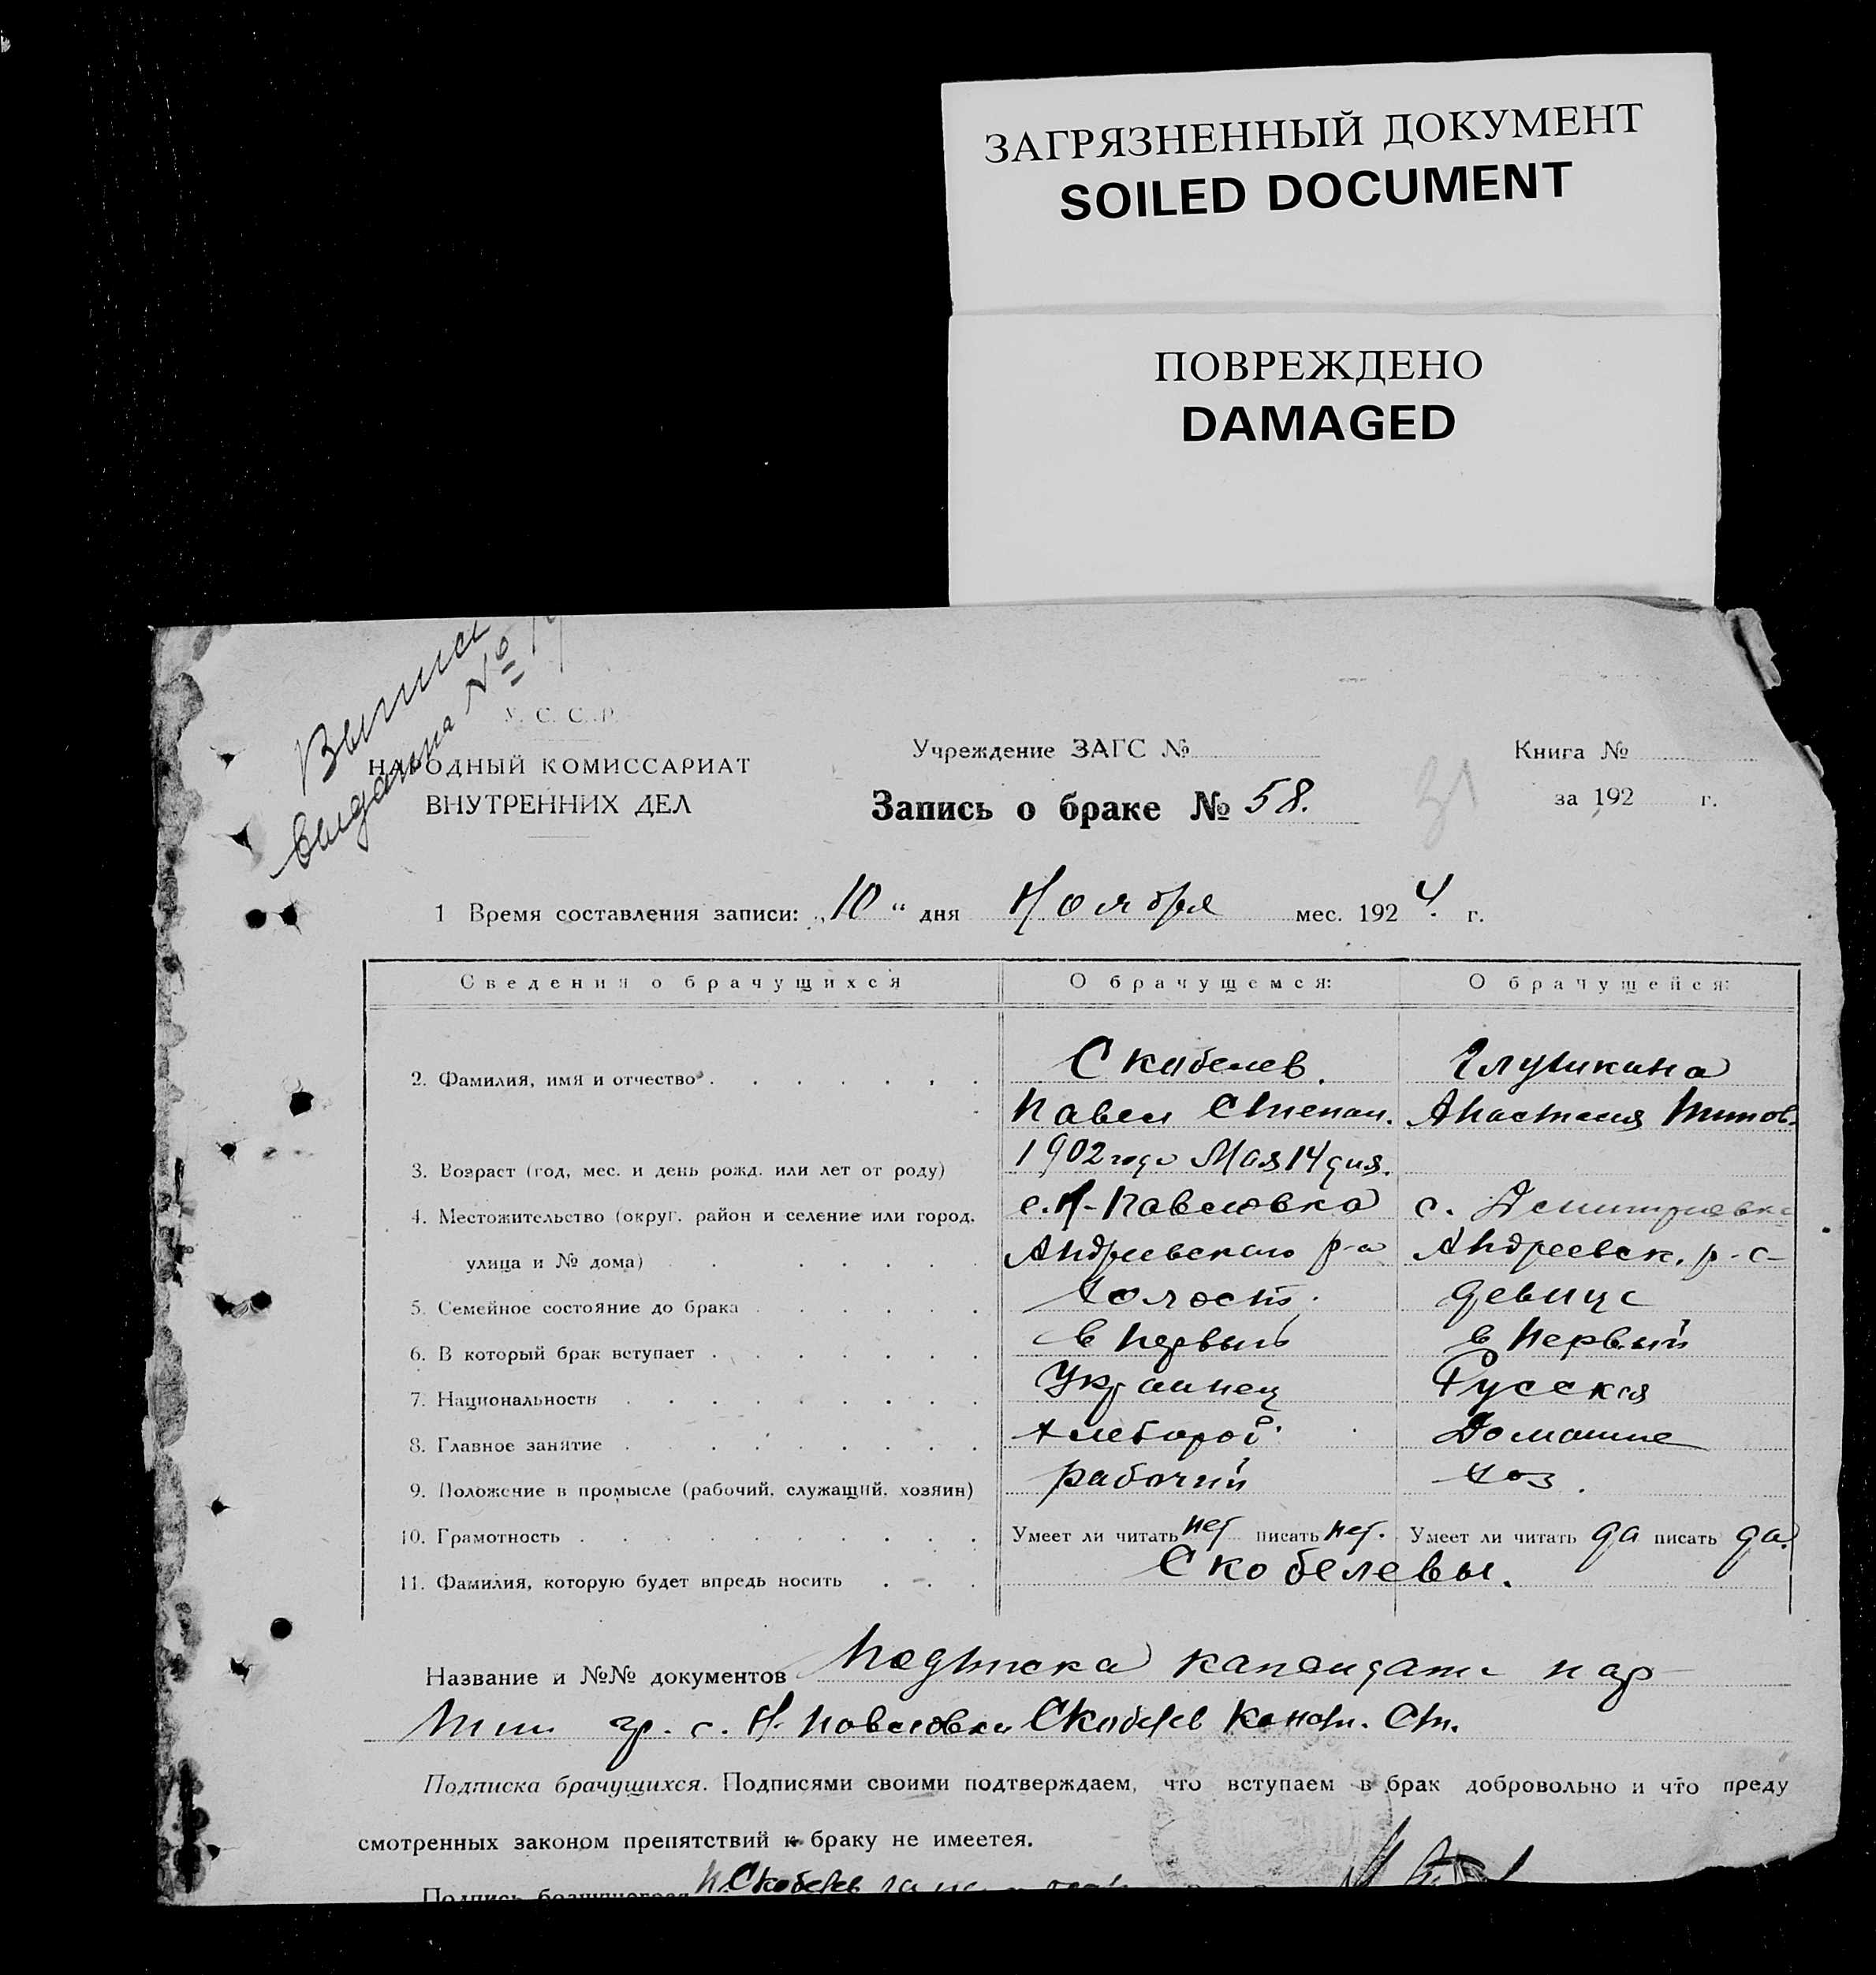 ЗАГРЯЗНЕННЫЙ ДОКУМЕНТ
SOILED DOCUMENT
ПОВРЕЖДЕНО
DAMAGED
Выпись
выдана №
У. С. С. Р.
НАРОДНЫЙ КОМИССАРИАТ
ВНУТРЕННИХ ДЕЛ
Учреждение ЗАГС №
Запись о браке № 58.
31
Книга №
за 192 г.
1 Время составления записи: „10“ дня Ноября мес. 1924. г.
Сведения о брачущихся О брачущемся: О брачущейся:
2. Фамилия, имя и отчество Скобелев. Глушкина
Павел Степан. Анастасия Титов.
3. Возраст (год, мес. и день рожд. или лет от роду) 1902 года Мая 14 дня.
4. Местожительство (округ, район и селение или город, с. Н-Павловка с. Дмитриевка
улица и № дома) Андреевского р-а Андреевск. р-а
5. Семейное состояние до брака холост. девица
6. В который брак вступает в первый в первый
7. Национальность Украинец Русская
8. Главное занятие хлебороб. Домашние
9. Положение в промысле (рабочий, служащий, хозяин) рабочий хоз.
10. Грамотность Умеет ли читать нет писать нет. Умеет ли читать да писать да.
11. Фамилия, которую будет впредь носить Скобелевы.
Название и №№ документов Подписка кандидата пар-
тии гр. с. Н. Павловки Скобелев Конст. Ст.
Подписка брачущихся. Подписями своими подтверждаем, что вступаем в брак добровольно и что преду
смотренных законом препятствий к браку не имеется.
Подпись брачущегося П. Скобелев